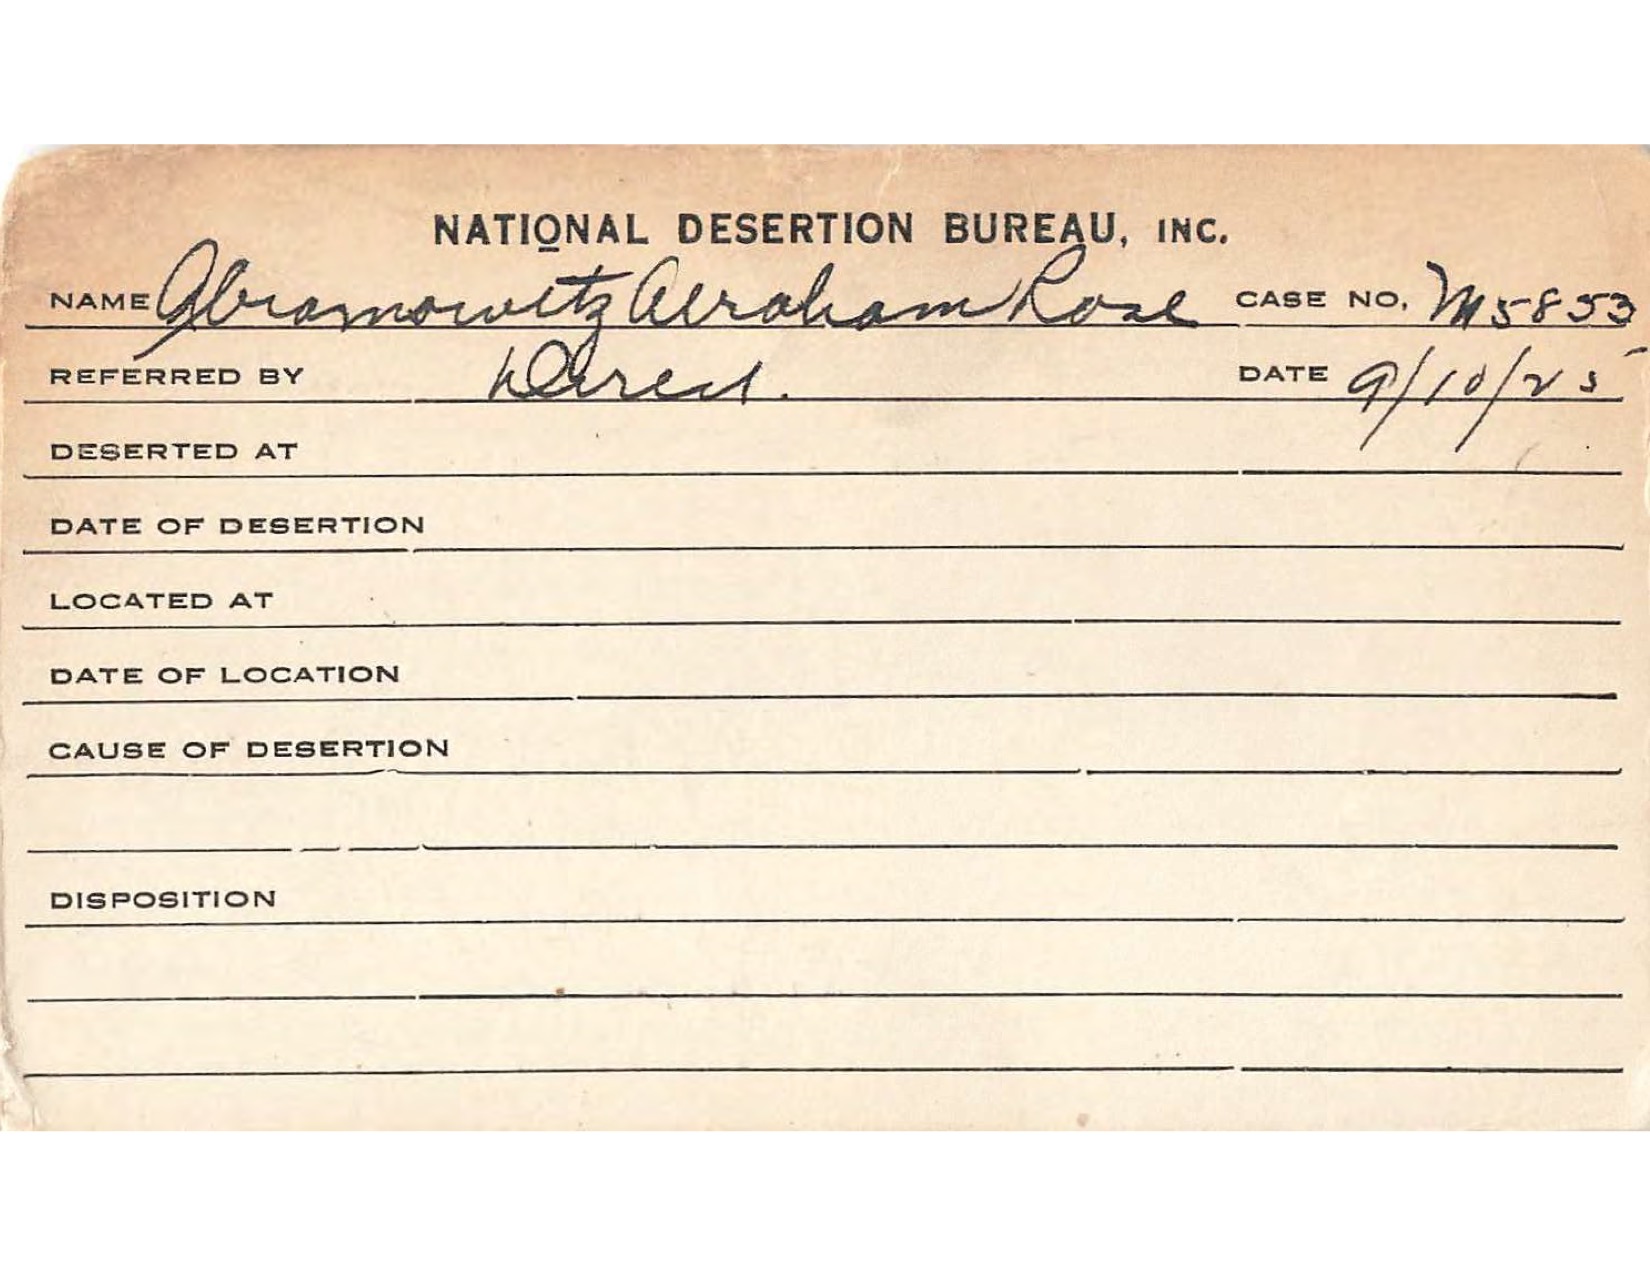 NATIONAL DESERTION BUREAU, INC.
NAME Abramowitz Abraham Rose CASE NO. M5853
REFERRED BY Direct. DATE 9/10/25
DESERTED AT
DATE OF DESERTION
LOCATED AT
DATE OF LOCATION
CAUSE OF DESERTION
DISPOSITION